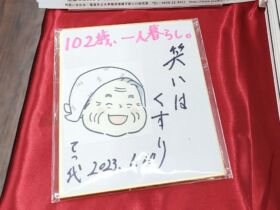 102歳、一人暮らし。
笑いは
くすり
てつ代
2023.1.